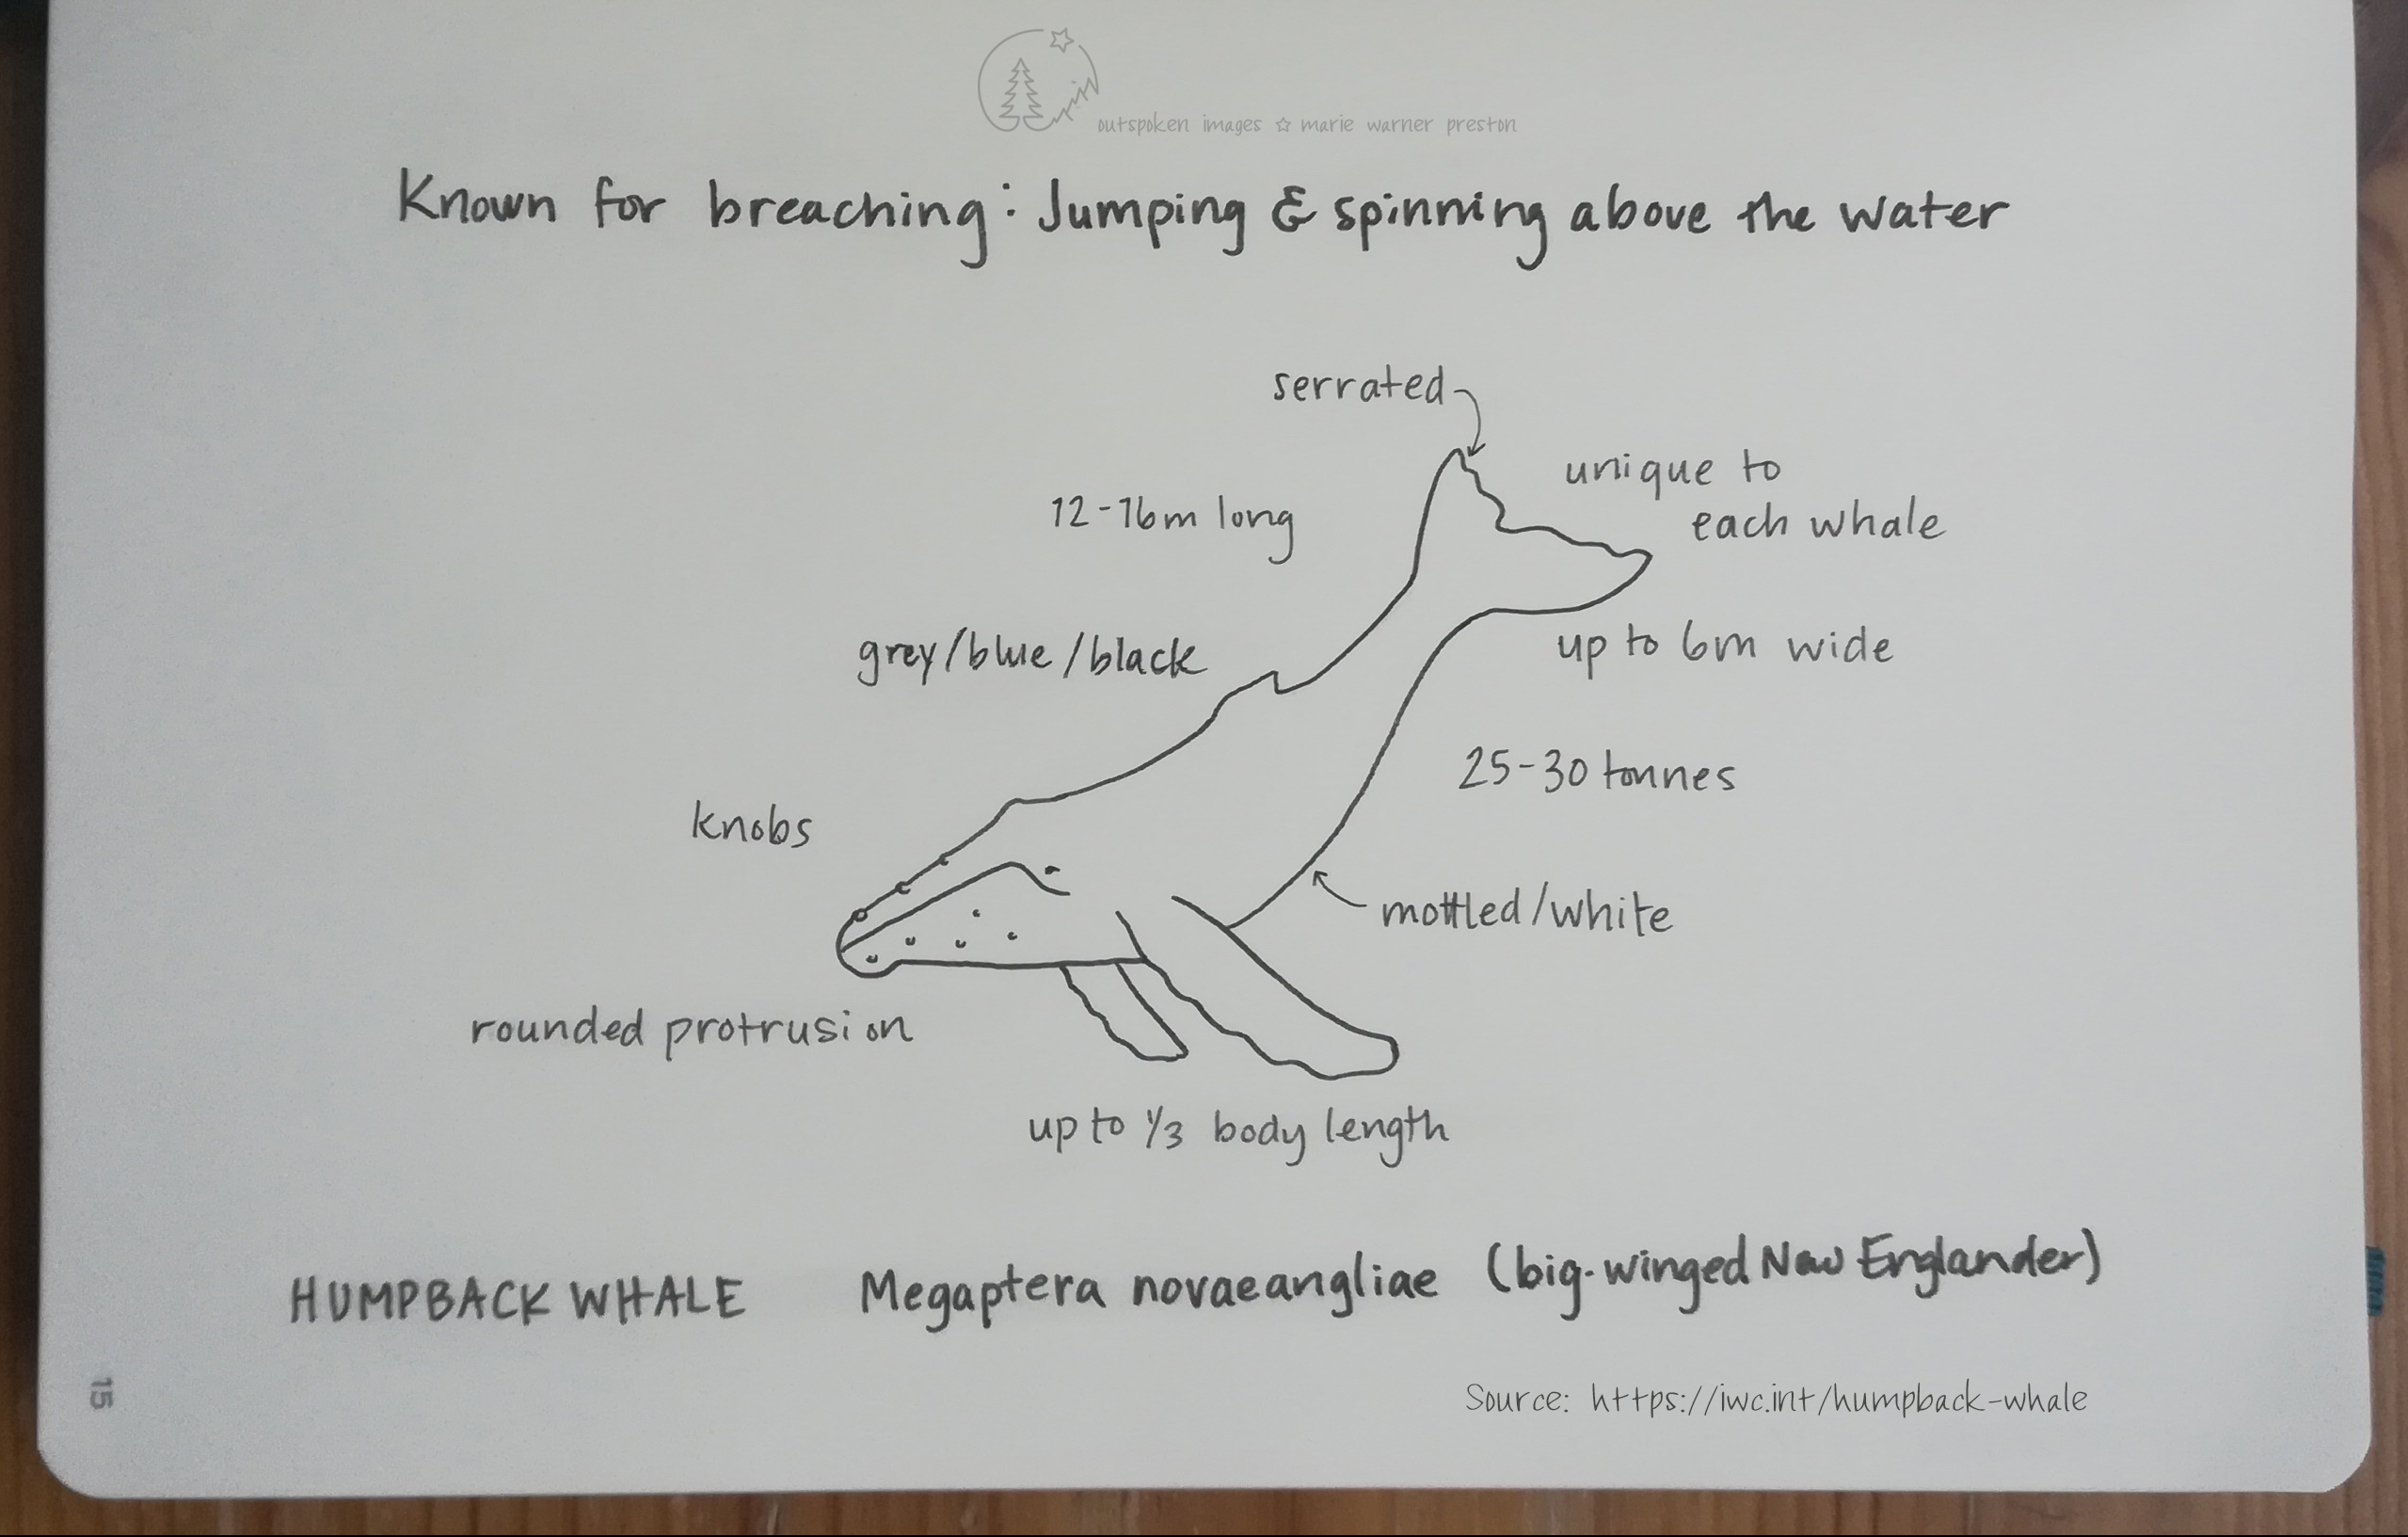 outspoken images ☆ marie warner preston
Known for breaching: Jumping & spinning above the water
serrated
unique to
each whale
12-16m long
up to 6m wide
grey/blue/black
25-30 tonnes
knobs
mottled/white
rounded protrusion
up to 1/3 body length
HUMPBACK WHALE Megaptera novaeangliae (big-winged New Englander)
15
Source: https://iwc.int/humpback-whale